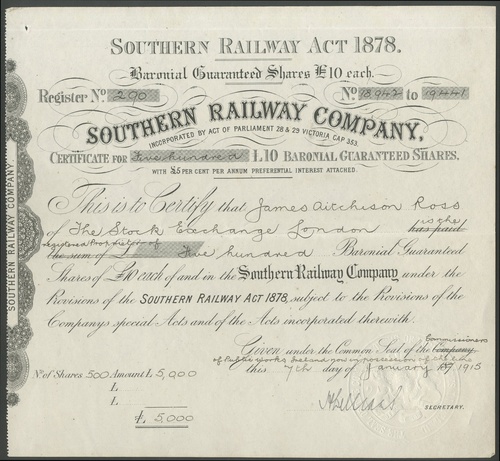 SOUTHERN RAILWAY ACT 1878.
Baronial Guaranteed Shares £10 each.
Register No. 290 No. 18942 to 19441
SOUTHERN RAILWAY COMPANY,
INCORPORATED BY ACT OF PARLIAMENT 28 & 29 VICTORIA CAP 353.
CERTIFICATE FOR Five hundred £10 BARONIAL GUARANTEED SHARES.
WITH £5 PER CENT PER ANNUM PREFERENTIAL INTEREST ATTACHED.
SOUTHERN RAILWAY COMPANY
This is to Certify that James Aitchison Ross
is the
of The Stock Exchange London has paid
registered Proprietor of
the sum of £ Five hundred Baronial Guaranteed
Shares of £10 each of and in the Southern Railway Company under the
Provisions of the SOUTHERN RAILWAY ACT 1878, subject to the Provisions of the
Company's special Acts and of the Acts incorporated therewith.
Commissioners
Given under the Common Seal of the Company
of Public Works Ireland now in possession of the line
this 7th day of January 1915
No. of Shares 500 Amount £5,000
£
£
£ 5,000
SECRETARY.